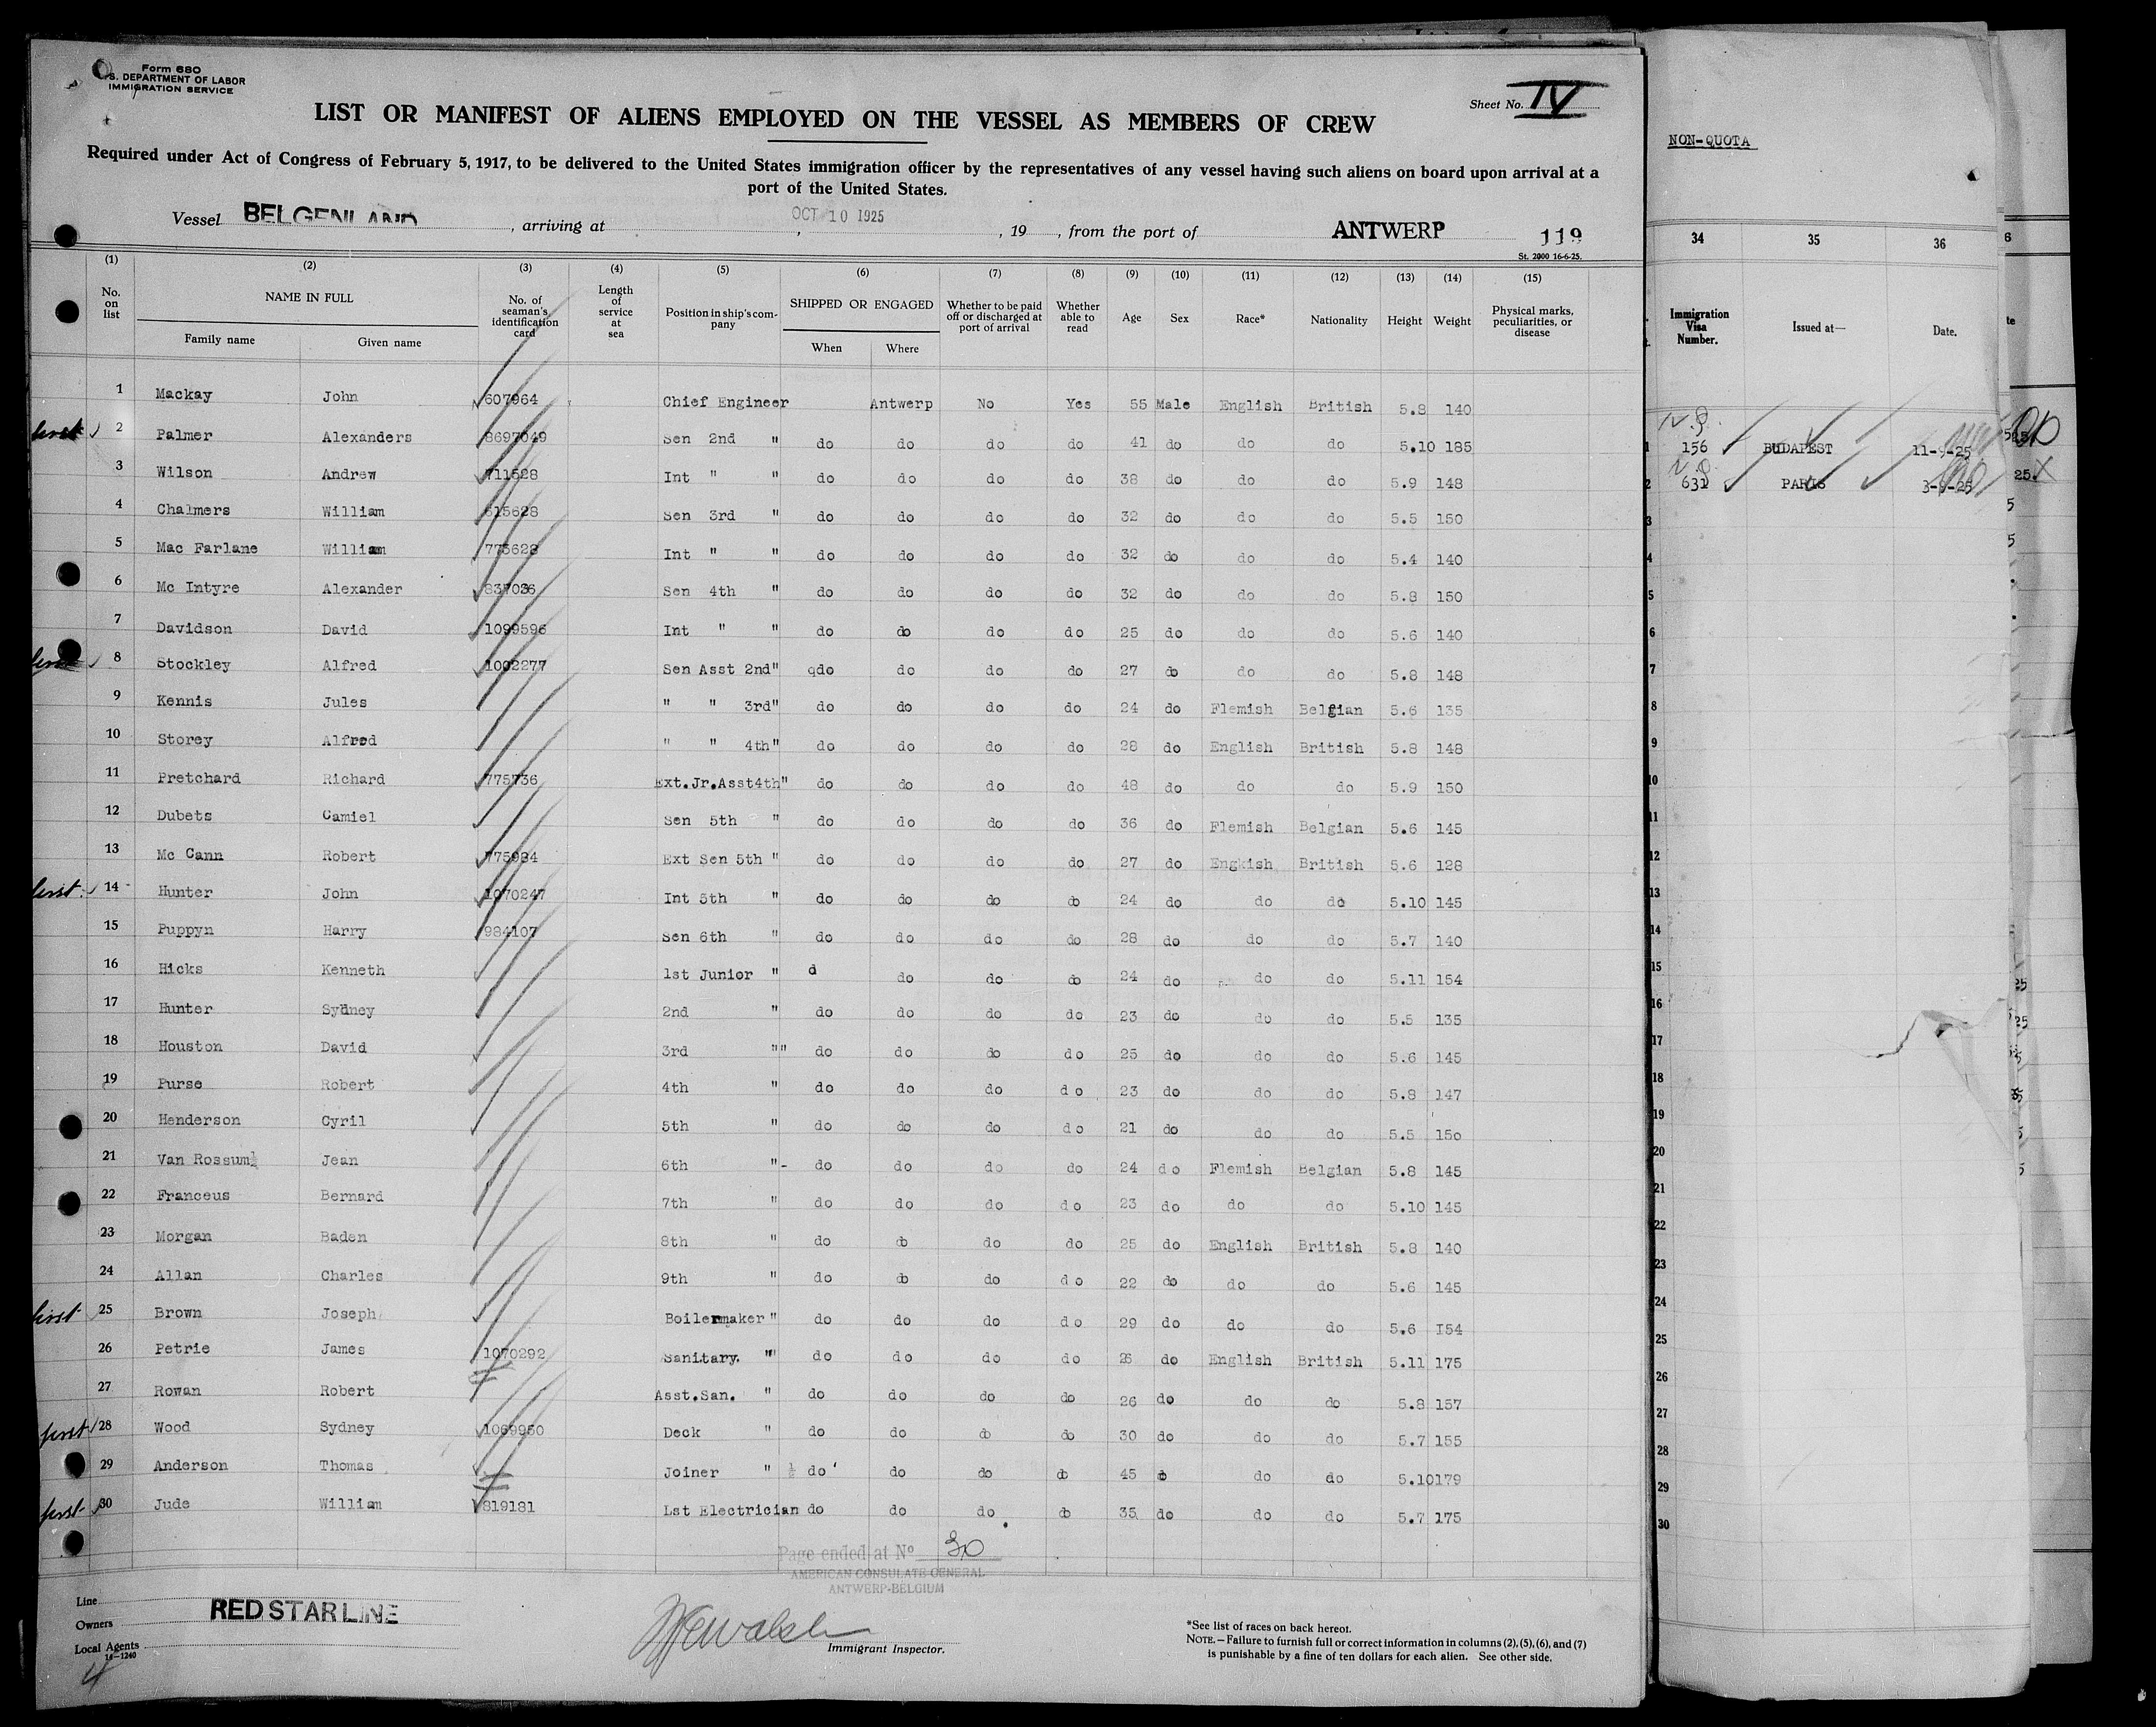 Form 680
U.S. DEPARTMENT OF LABOR
IMMIGRATION SERVICE
Sheet No. IV
LIST OR MANIFEST OF ALIENS EMPLOYED ON THE VESSEL AS MEMBERS OF CREW
Required under Act of Congress of February 5, 1917, to be delivered to the United States immigration officer by the representatives of any vessel having such aliens on board upon arrival at a
port of the United States.
Vessel BELGENLAND, arriving at , OCT 10 1925, 19 , from the port of ANTWERP 119
St. 2000 16-6-25.
(1) (2) (3) (4) (5) (6) (7) (8) (9) (10) (11) (12) (13) (14) (15)
No. on list NAME IN FULL Family name Given name No. of seaman's identification card Length of service at sea Position in ship's company SHIPPED OR ENGAGED When Where Whether to be paid off or discharged at port of arrival Whether able to read Age Sex Race* Nationality Height Weight Physical marks, peculiarities, or disease
1 Mackay John 607964 Chief Engineer Antwerp No Yes 55 Male English British 5.8 140
first 2 Palmer Alexanders 8697049 Sen 2nd " do do do do 41 do do do 5.10 185
3 Wilson Andrew 711628 Int " " do do do do 38 do do do 5.9 148
4 Chalmers William 615628 Sen 3rd " do do do do 32 do do do 5.5 150
5 Mac Farlane William 775628 Int " " do do do do 32 do do do 5.4 140
6 Mc Intyre Alexander 837036 Sen 4th " do do do do 32 do do do 5.8 150
7 Davidson David 1099596 Int " " do do do do 25 do do do 5.6 140
first 8 Stockley Alfred 1002277 Sen Asst 2nd" qdo do do do 27 do do do 5.8 148
9 Kennis Jules " " 3rd" do do do do 24 do Flemish Belgian 5.6 135
10 Storey Alfred " " 4th" do do do do 28 do English British 5.8 148
11 Pretchard Richard 775736 Ext.Jr.Asst4th" do do do do 48 do do do 5.9 150
12 Dubets Camiel Sen 5th " do do do do 36 do Flemish Belgian 5.6 145
13 Mc Cann Robert 775984 Ext Sen 5th " do do do do 27 do Engkish British 5.6 128
first 14 Hunter John 1070247 Int 5th " do do do do 24 do do do 5.10 145
15 Puppyn Harry 984107 Sen 6th " do do do do 28 do do do 5.7 140
16 Hicks Kenneth 1st Junior " d do do do 24 do do do 5.11 154
17 Hunter Sydney 2nd " do do do do 23 do do do 5.5 135
18 Houston David 3rd "" do do do do 25 do do do 5.6 145
19 Purse Robert 4th " do do do do 23 do do do 5.8 147
20 Henderson Cyril 5th " do do do do 21 do do do 5.5 150
21 Van Rossum½ Jean 6th "- do do do do 24 do Flemish Belgian 5.8 145
22 Franceus Bernard 7th " do do do do 23 do do do 5.10 145
23 Morgan Baden 8th " do do do do 25 do English British 5.8 140
24 Allan Charles 9th " do do do do 22 do do do 5.6 145
first 25 Brown Joseph Boilermaker " do do do do 29 do do do 5.6 I54
26 Petrie James 1070292 Sanitary. " do do do do 26 do English British 5.11 175
27 Rowan Robert Asst.San. " do do do do 26 do do do 5.8 157
first 28 Wood Sydney 1069950 Deck " do do do do 30 do do do 5.7 155
29 Anderson Thomas Joiner " ½ do ' do do do 45 do do do 5.10 179
first 30 Jude William 819181 Lst Electrician do do do do 35 do do do 5.7 175
Page ended at No 30
AMERICAN CONSULATE GENERAL
ANTWERP-BELGIUM
Line
Owners RED STAR LINE
Local Agents
14-1240
Immigrant Inspector.
*See list of races on back hereof.
NOTE.—Failure to furnish full or correct information in columns (2), (5), (6), and (7)
is punishable by a fine of ten dollars for each alien. See other side.
NON-QUOTA
34 35 36
Immigration Visa Number. Issued at— Date.
1 156 BUDAPEST 11-9-25
2 631 PARIS 3-9-25
3
4
5
6
7
8
9
10
11
12
13
14
15
16
17
18
19
20
21
22
23
24
25
26
27
28
29
30